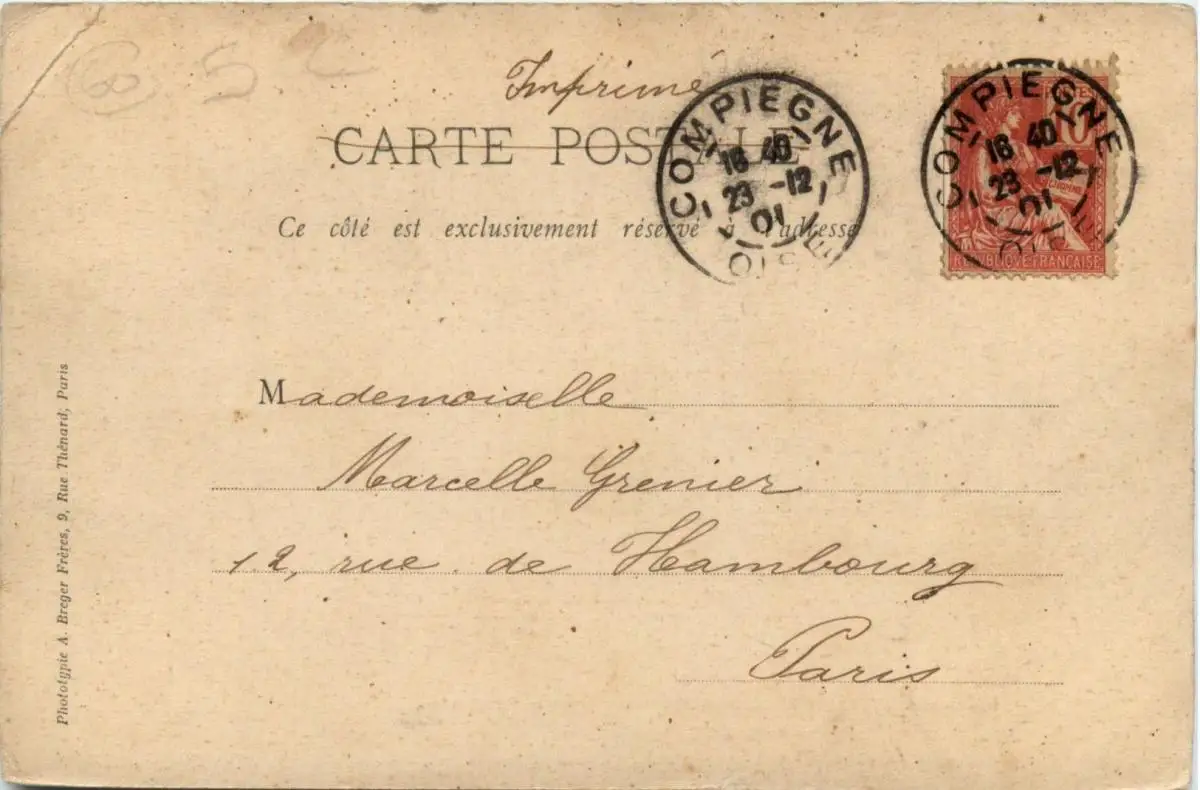 60 52
Imprimé
CARTE POSTALE
Ce côté est exclusivement réservé à l'adresse
COMPIEGNE
16 40
23 -12
01
OISE
COMPIEGNE
16 40
23 -12
01
OISE
10
L'HOMME
REPUBLIQUE FRANÇAISE
Mademoiselle
Marcelle Grenier
12, rue de Hambourg
Paris
Phototypie A. Breger Frères, 9, Rue Thénard, Paris